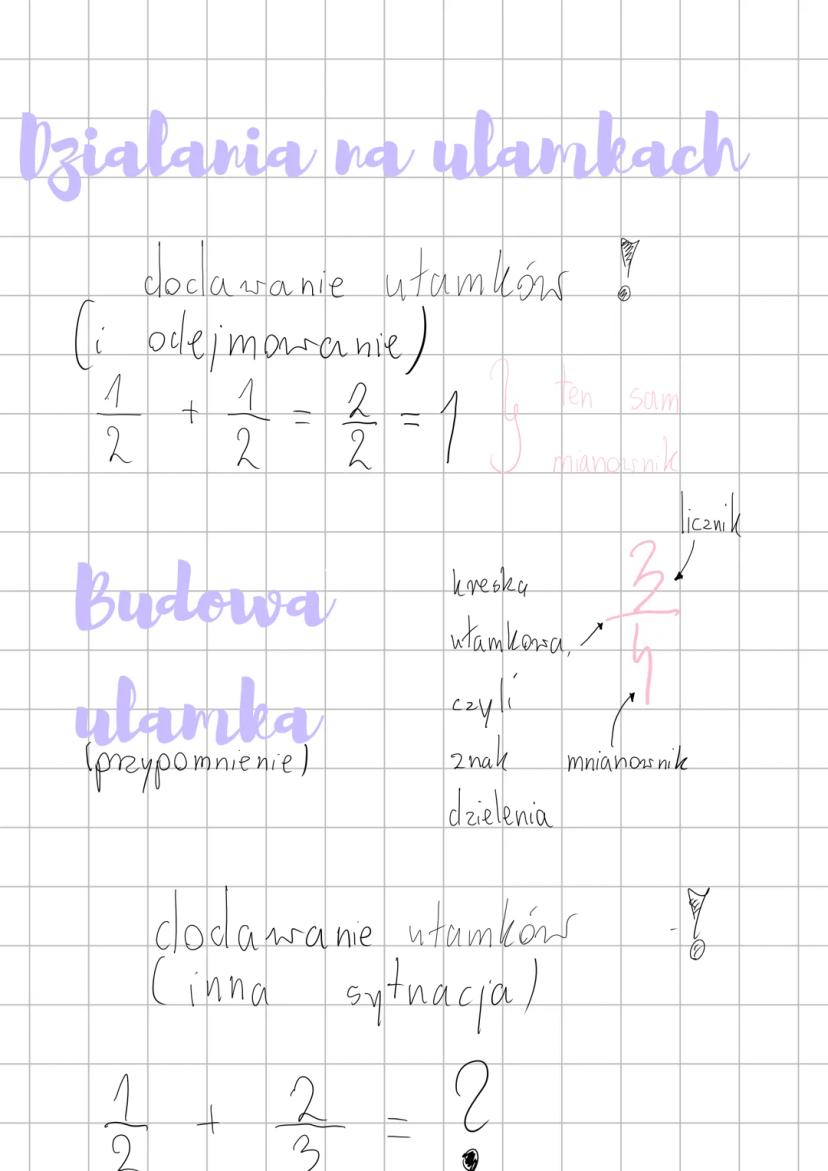 Dzialania na ulamkach
dodawanie ułamków !
(i odejmowanie)
1/2 + 1/2 = 2/2 = 1 } ten sam
mianownik
licznik
3/4
Budowa
ulamka
(przypomnienie)
kreska
ułamkowa,
czyli
znak
dzielenia
mnianownik
dodawanie ułamków !
(inna sytuacja)
1/2 + 2/3 = ?